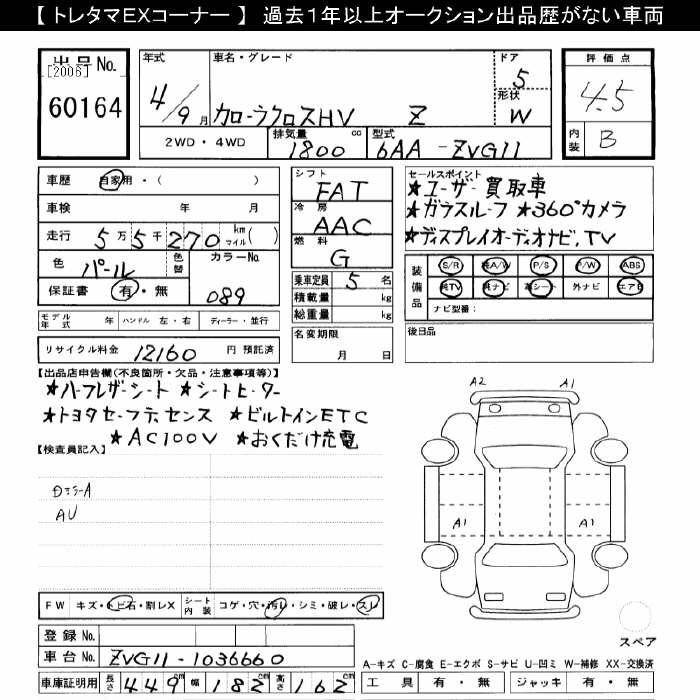 【 トレタマEXコーナー 】 過去１年以上オークション出品歴がない車両
出品No.
[2006]
60164
年式
4/9月
車名・グレード
カローラクロスHV Z
ドア
5
形状
W
2WD・4WD
排気量
1800 cc
型式
6AA-ZVG11
評価点
4.5
内装
B
車歴 自家用・( )
車検 年 月
走行 5万5千270 km マイル( )
色 パール 色替 カラーNo.
保証書 有・無 089
モデル年式 年 ハンドル 左・右 ディーラー・並行
リサイクル料金 12160 円 預託済
シフト
FAT
冷房
AAC
燃料
G
乗車定員 5 名
積載量 kg
総重量 kg
名変期限
月 日
セールスポイント
★ユーザー買取車
★ガラスルーフ ★360°カメラ
★ディスプレイオーディオナビ,TV
装備品
S/R 純A/W P/S P/W ABS
純TV 純ナビ 革シート 外ナビ エアB
ナビ型番:
後日品
【出品店申告欄(不良箇所・欠品・注意事項等)】
★ハーフレザーシート ★シートヒーター
★トヨタセーフティセンス ★ビルトインETC
★AC100V ★おくだけ充電
【検査員記入】
DミラーA
AU
A2 A1
A1 A1
スペア
FW キズ・トビ石・割レX シート内装 コゲ・穴・汚レ・シミ・破レ・スレ
登録No.
車台No. ZVG11-1036660
車庫証明用 長さ 449cm 幅 182cm 高さ 162cm
A-キズ C-腐食 E-エクボ S-サビ U-凹ミ W-補修 XX-交換済
工具 有・無 ジャッキ 有・無